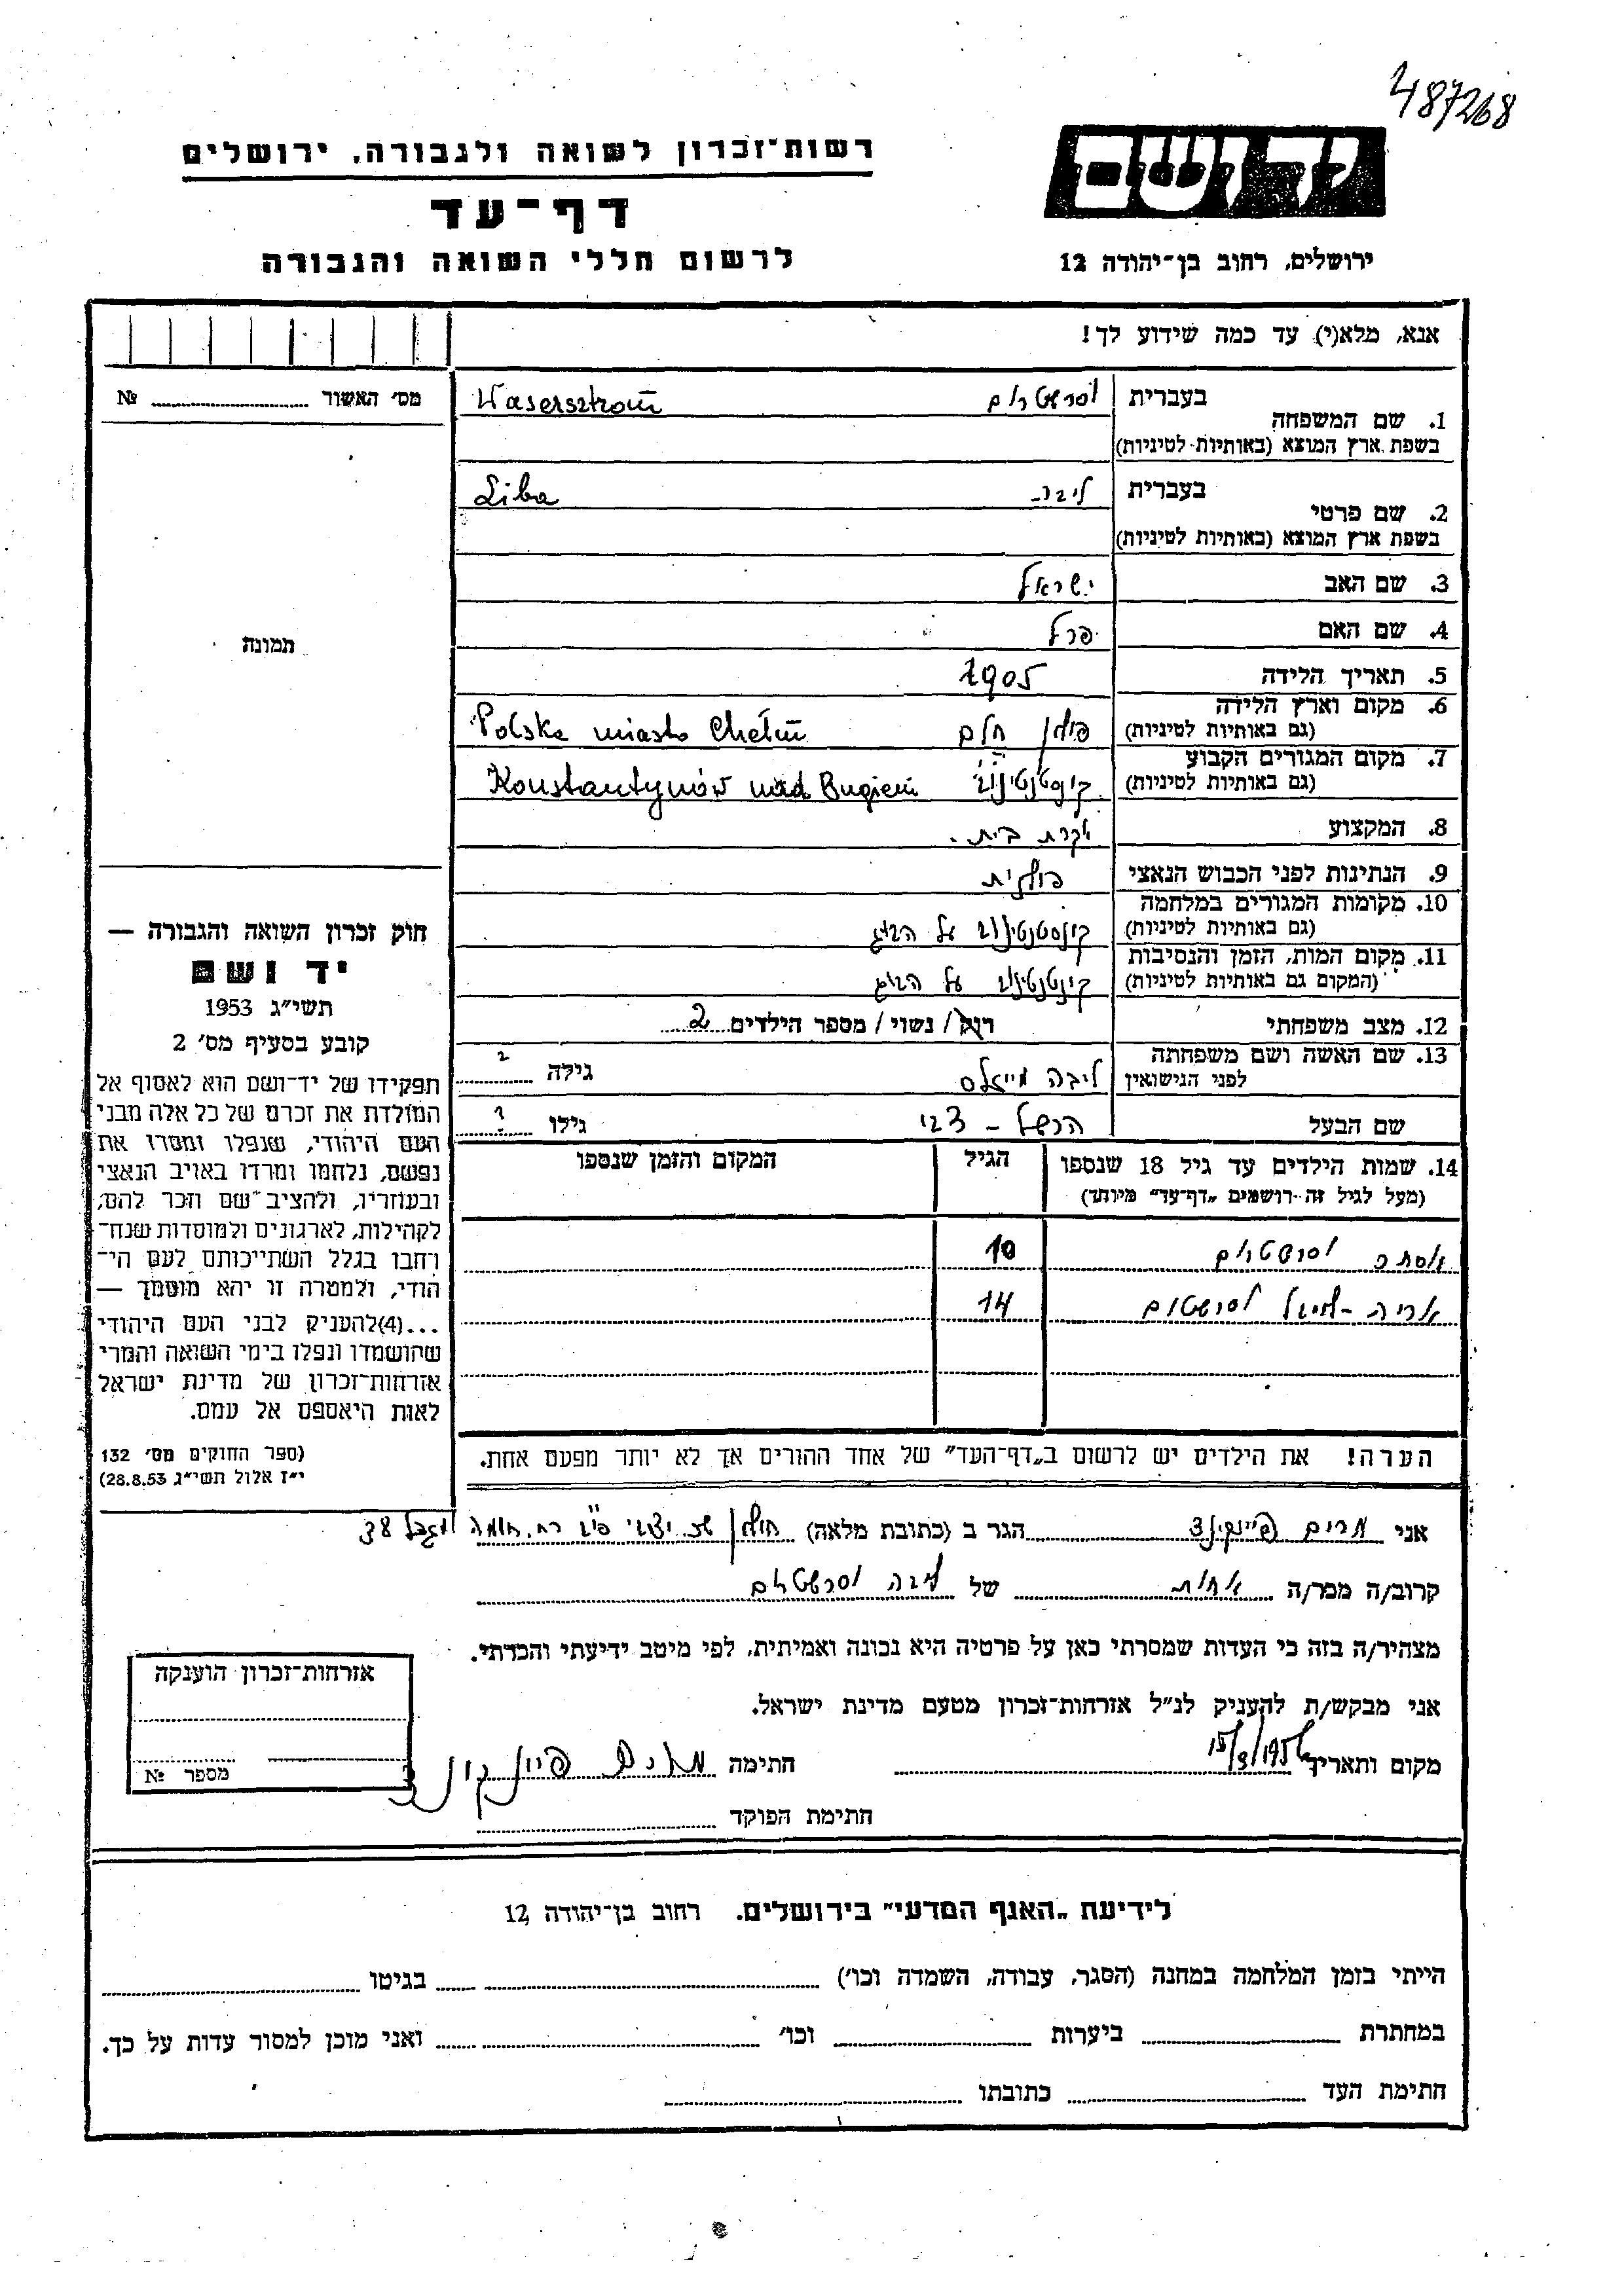 487268
יד ושם
רשות־זכרון לשואה ולגבורה, ירושלים
דף־עד
לרשום חללי השואה והגבורה
ירושלים, רחוב בן־יהודה 12
אנא, מלא(י) עד כמה שידוע לך!
מס׳ האשור № ........
1. שם המשפחה
בעברית וסרשטרום Wasersztrom
בשפת ארץ המוצא (באותיות לטיניות)
2. שם פרטי
בעברית ליבה Liba
בשפת ארץ המוצא (באותיות לטיניות)
3. שם האב ישראל
4. שם האם פרל
5. תאריך הלידה 1905
6. מקום וארץ הלידה
(גם באותיות לטיניות) פולין חלם Polska miasto Chełm
7. מקום המגורים הקבוע
(גם באותיות לטיניות) Konstantynów nad Bugiem
8. המקצוע עקרת בית.
9. הנתינות לפני הכבוש הנאצי פולנית
10. מקומות המגורים במלחמה
(גם באותיות לטיניות) קונסטנטינוב על הבוג
11. מקום המות, הזמן והנסיבות
(המקום גם באותיות לטיניות) על הבוג
12. מצב משפחתי רווק/ נשוי/ מספר הילדים 2
13. שם האשה ושם משפחתה
לפני הנישואין ליבה גילה ?
שם הבעל הרשל – צבי גילו ?
14. שמות הילדים עד גיל 18 שנספו
(מעל לגיל זה רושמים „דף־עד״ מיוחד)
הגיל
המקום והזמן שנספו
אסתר וסרשטרום 10
אריה וסרשטרום 14
הערה! את הילדים יש לרשום ב„דף־העד״ של אחד ההורים אך לא יותר מפעם אחת.
תמונה
חוק זכרון השואה והגבורה —
יד ושם
תשי״ג 1953
קובע בסעיף מס׳ 2
תפקידו של יד־ושם הוא לאסוף אל
המולדת את זכרם של כל אלה מבני
העם היהודי, שנפלו ומסרו את
נפשם, נלחמו ומרדו באויב הנאצי
ובעוזריו, ולהציב שם וזכר להם,
לקהילות, לארגונים ולמוסדות שנח־
רחבו בגלל השתייכותם לעם הי־
הודי, ולמטרה זו יהא מוסמך —
...(4)להעניק לבני העם היהודי
שהושמדו ונפלו בימי השואה והמרי
אזרחות־זכרון של מדינת ישראל
לאות היאספם אל עמם.
(ספר החוקים מס׳ 132
י״ז אלול תשי״ג 28.8.53)
אני מרים הגר ב (כתובת מלאה) חולון 38
קרוב/ה מכר/ה אחות של ליבה וסרשטרום
מצהיר/ה בזה כי העדות שמסרתי כאן על פרטיה היא נכונה ואמיתית, לפי מיטב ידיעתי והכרתי.
אני מבקש/ת להעניק לנ״ל אזרחות־זכרון מטעם מדינת ישראל.
מקום ותאריך 15/3/195 חתימה מרים
חתימת הפוקד
אזרחות־זכרון הוענקה
מספר №
לידיעת „האגף המדעי״ בירושלים. רחוב בן־יהודה 12
הייתי בזמן המלחמה במחנה (הסגר, עבודה, השמדה וכו׳) בגיטו
במחתרת ביערות וכו׳ ואני מוכן למסור עדות על כך.
חתימת העד כתובתו